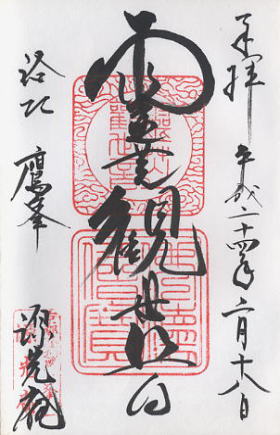 奉拝 平成二十四年二月十八日
霊芝観世音
洛北 鷹峯
源光庵